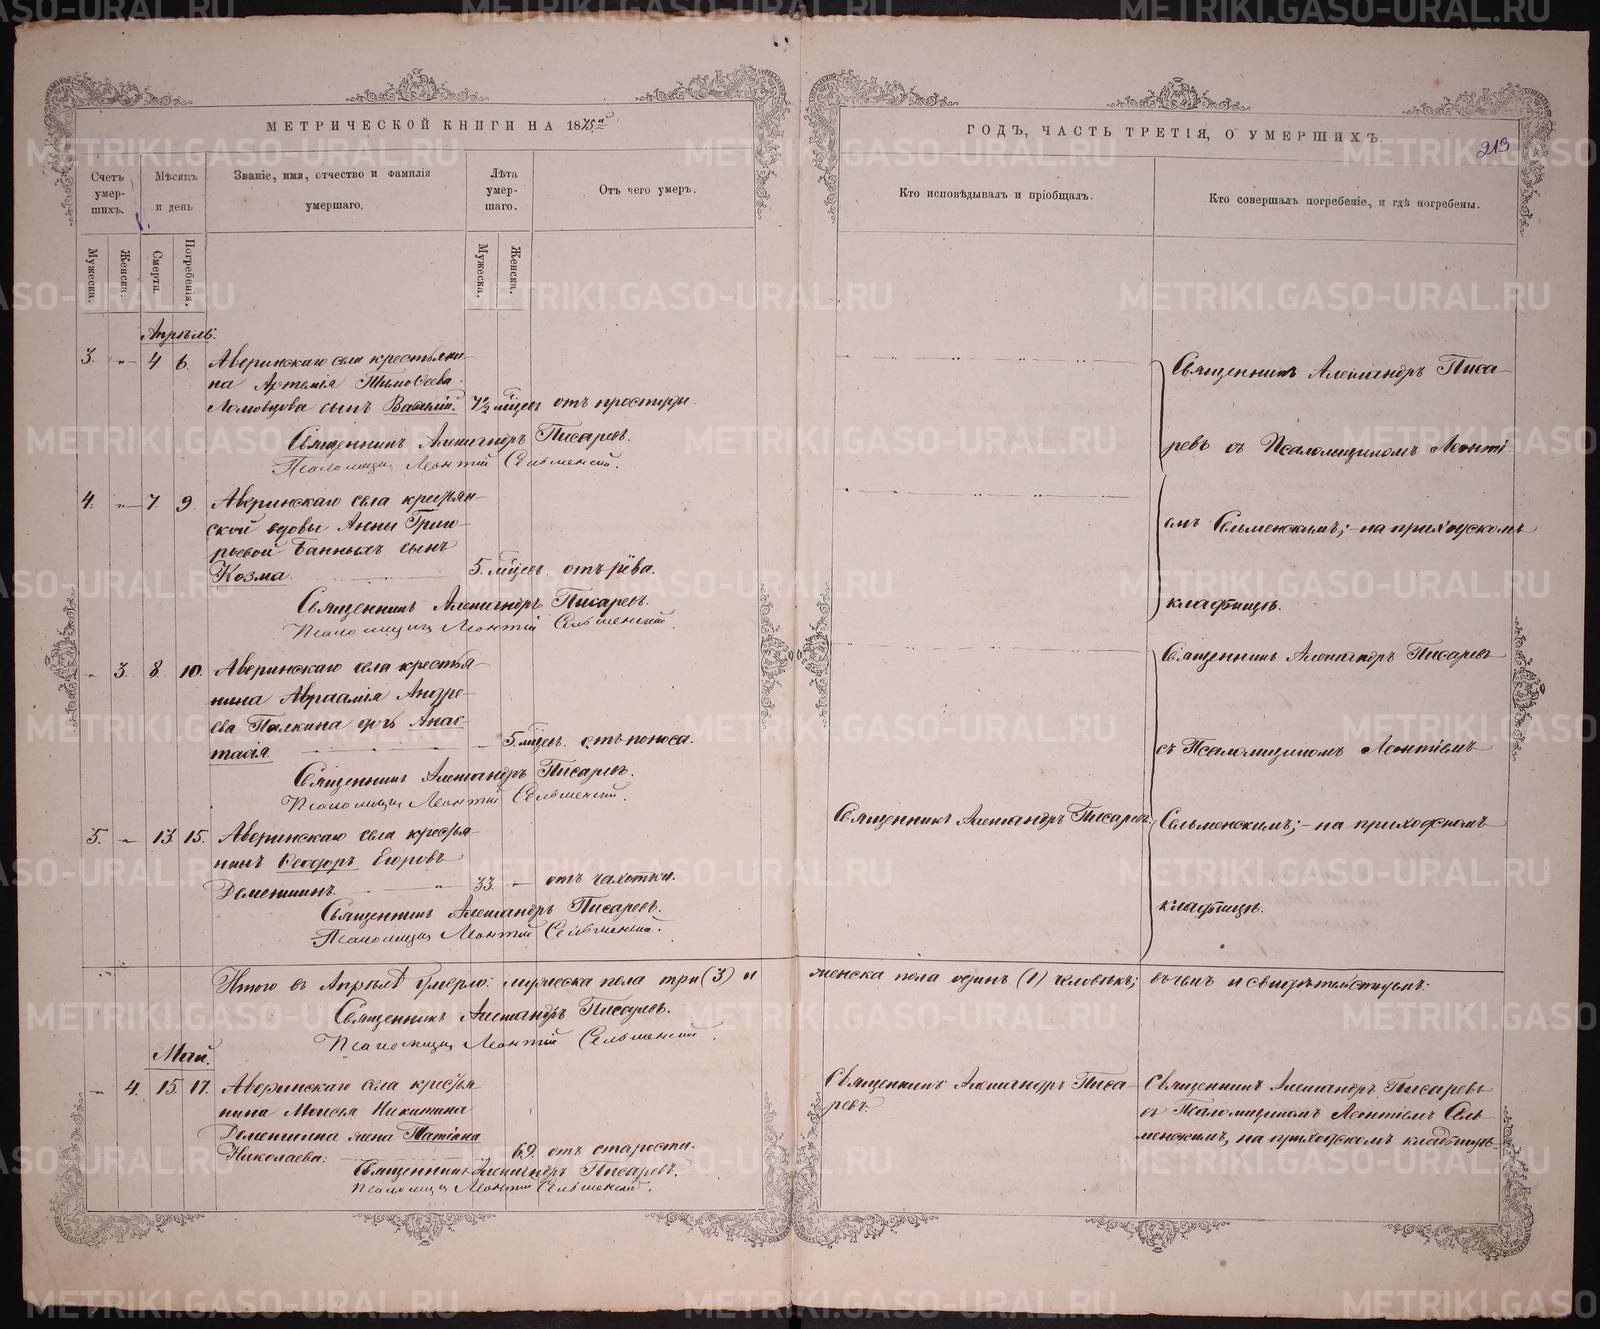 МЕТРИЧЕСКОЙ КНИГИ НА 1875й
ГОДЪ, ЧАСТЬ ТРЕТІЯ, О УМЕРШИХЪ.
213
Счетъ умер-шихъ.
Мѣсяцъ и день
Званіе, имя, отчество и фамилія
умершаго.
Лѣта умер-шаго.
Отъ чего умеръ.
Кто исповѣдывалъ и пріобщалъ.
Кто совершалъ погребеніе, и гдѣ погребены.
Мужеска.
Женска.
Смерти.
Погребенія.
Мужеска.
Женска.
Апрѣль.
3. „ 4 6. Аверинскаго села крестьяни-
на Артемія Тимоѳеева
Ломовцова сынъ Василій. 7½ мѣсяц отъ простуды.
Священникъ Александръ Писаревъ.
Псаломщикъ Леонтій Сельменскій.
4. „ 7. 9. Аверинскаго села крестьян-
ской вдовы Анны Григо-
рьевой Банныхъ сынъ
Козма. 5. мѣсяц. отъ рёва.
Священникъ Александръ Писаревъ.
Псаломщикъ Леонтій Сельменскій.
Священникъ Александръ Писа-
ревъ съ Псаломщикомъ Леонті-
емъ Сельменскимъ; – на приходскомъ
кладбищѣ.
„ 3. 8. 10. Аверинскаго села крестья-
нина Авраамія Андре-
ева Палкина дчь Анас-
тасія. 5. мѣсяц. отъ поноса.
Священникъ Александръ Писаревъ.
Псаломщикъ Леонтій Сельменскій.
5. „ 13. 15. Аверинскаго села крестья-
нинъ Ѳеодоръ Егоровъ
Деменшинъ. „ 33. „ отъ чахотки.
Священникъ Александръ Писаревъ.
Псаломщикъ Леонтій Сельменскій.
Священникъ Александръ Писаревъ.
Священникъ Александръ Писаревъ
съ Псаломщикомъ Леонтіемъ
Сельменскимъ; – на приходскомъ
кладбищѣ.
Итого въ Апрѣлѣ умерло: мужеска пола три (3) и женска пола одинъ (1) человѣкъ; въ чемъ и свидѣтельствуемъ:
Священникъ Александръ Писаревъ.
Псаломщикъ Леонтій Сельменскій.
Май.
„ 4. 15. 17. Аверинскаго села крестья-
нина Моисея Никитина
Деменшина жена Татіана
Николаева: 69. отъ старости.
Священникъ Александръ Писаревъ.
Псаломщикъ Леонтій Сельменскій.
Священникъ Александръ Писа-
ревъ.
Священникъ Александръ Писаревъ
съ Псаломщикомъ Леонтіемъ Сель-
менскимъ, на приходскомъ кладбищѣ.
METRIKI.GASO-URAL.RU